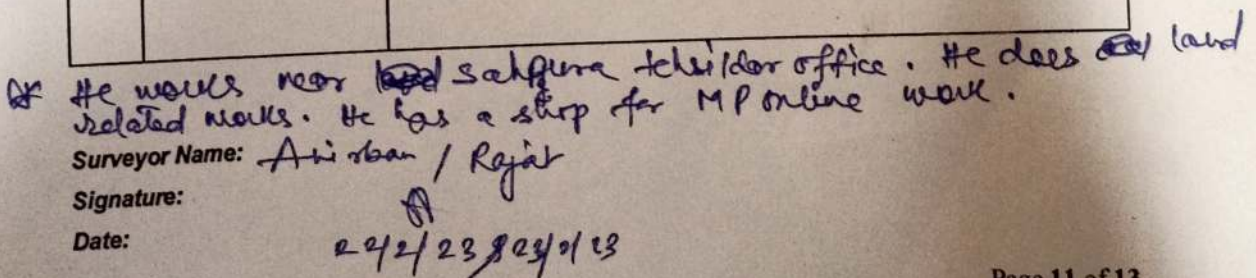 * He works near sahpura tehsildor office. He does land
related works. He has a shop for MP online work.
Surveyor Name: Anirban / Rajat
Signature:
Date: 22/2/23 & 23/2/23
Page 11 of 13